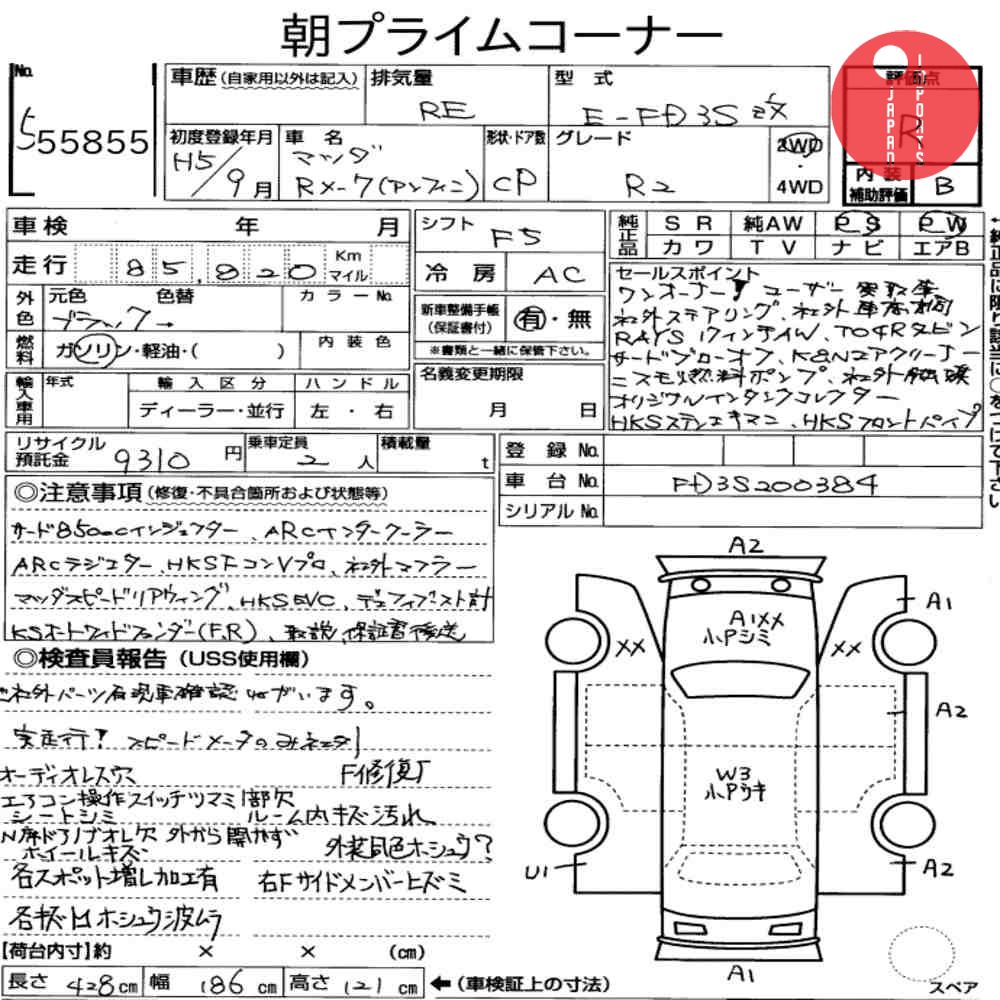 朝プライムコーナー
JAPAN IMPORTS
No.
55855
車歴 (自家用以外は記入)
排気量
RE
型 式
E-FD3S改
評価点
R
初度登録年月
H5/9月
車 名
マツダ
RX-7(アンフィニ)
形状・ドア数
CP
グレード
R2
2WD
・
4WD
内 装
補助評価
B
車検 年 月
走行 85,820 Km
マイル
シフト
F5
冷 房 AC
純正品
SR 純AW PS PW
カワ TV ナビ エアB
←純正品に限り該当に○をつけて下さい
外色
元色 色替
ブラック→
カラーNo.
燃料
ガソリン・軽油・( )
内 装 色
新車整備手帳
(保証書付)
有・無
※書類と一緒に保管下さい。
セールスポイント
ワンオーナー ユーザー買取車
社外ステアリング、社外車高調
RAYS 17インチAW、TO4Rタビン
サードブローオフ、K&Nエアクリーナー
ニスモ燃料ポンプ、社外触媒
オリジナルインタンクコレクター
HKSステンエキマニ、HKSフロントパイプ
輸入車用
年式
輸 入 区 分
ディーラー・並行
ハ ン ド ル
左 ・ 右
名義変更期限
月 日
リサイクル
預託金 9310 円
乗車定員
2 人
積載量
t
登 録 No.
車 台 No. FD3S200384
シリアル No.
◎注意事項 (修復・不具合箇所および状態等)
サード850ccインジェクター、ARCインタークーラー
ARCラジエター、HKSFコンVプロ、社外マフラー
マツダスピードリアウィング、HKSEVC、デフィブースト計
KSオートワイドフェンダー(F,R)、取説 保証書後送
◎検査員報告 (USS使用欄)
社外パーツ有現車確認ねがいます。
実走行! スピードメータのみ
オーディオレス穴 F修復
エアコン操作スイッチツマミ1部欠
シートシミ ルーム内キズ汚れ
N席ドアノブオレ欠 外から開かず
ホイールキズ 外装同色ホシュウ?
各スポット増し加工有 右Fサイドメンバーヒズミ
各キズ凹ホシュウ波ムラ
A2
A1XX
小Pシミ
A1
XX
XX
A2
W3
小Pウキ
U1
A2
A1
スペア
【荷台内寸】約 × × (cm)
長さ 428cm 幅 186cm 高さ 121cm ←(車検証上の寸法)